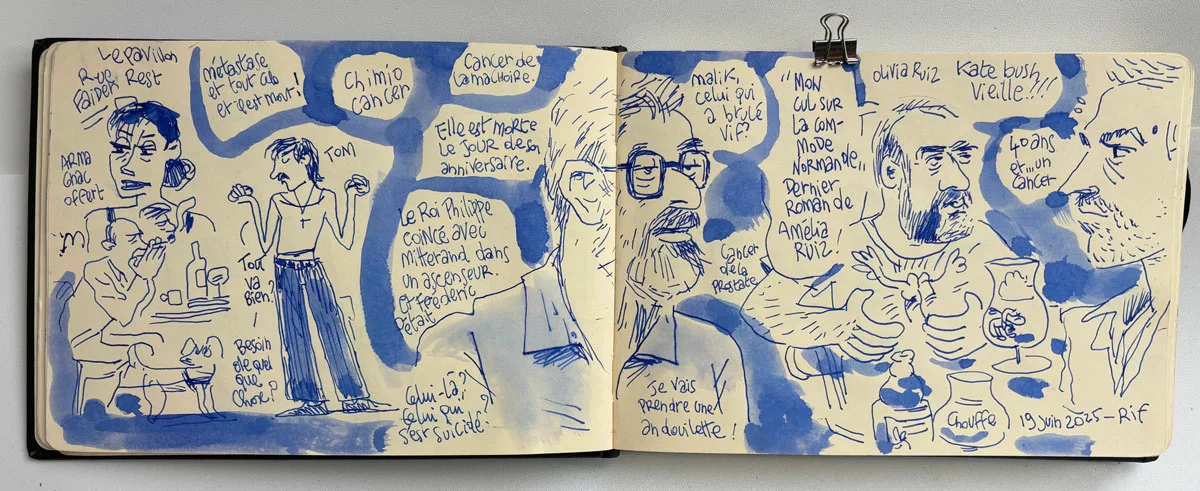 Le pavillon
Rue Rest
Faider
métastase
et tout cela
et il est mort !
Chimio
cancer
Cancer de
la machoire.
ARMA
GNAC
offert
TOM
Elle est morte
le jour de son
anniversaire.
Le Roi Philippe
coincé avec
Mitterand dans
un ascenseur.
Et Frédéric
Tout
va
Bien ?
!
Besoin
de quel
que
Chose ?
Celui-là ?
Celui qui
s'est suicidé.
malik,
celui qui
a brûlé
vif ?
"MON
CUL SUR
La com-
MODE
NORMANDE,,
Dernier
Roman de
Amélia
Ruiz !
Cancer
de la
prostate
Je vais
prendre une
andouillette !
Olivia Ruiz
Kate bush,
vieille !!!
40 ans
et... un
cancer
Chouffe
19 juin 2025 - Rif